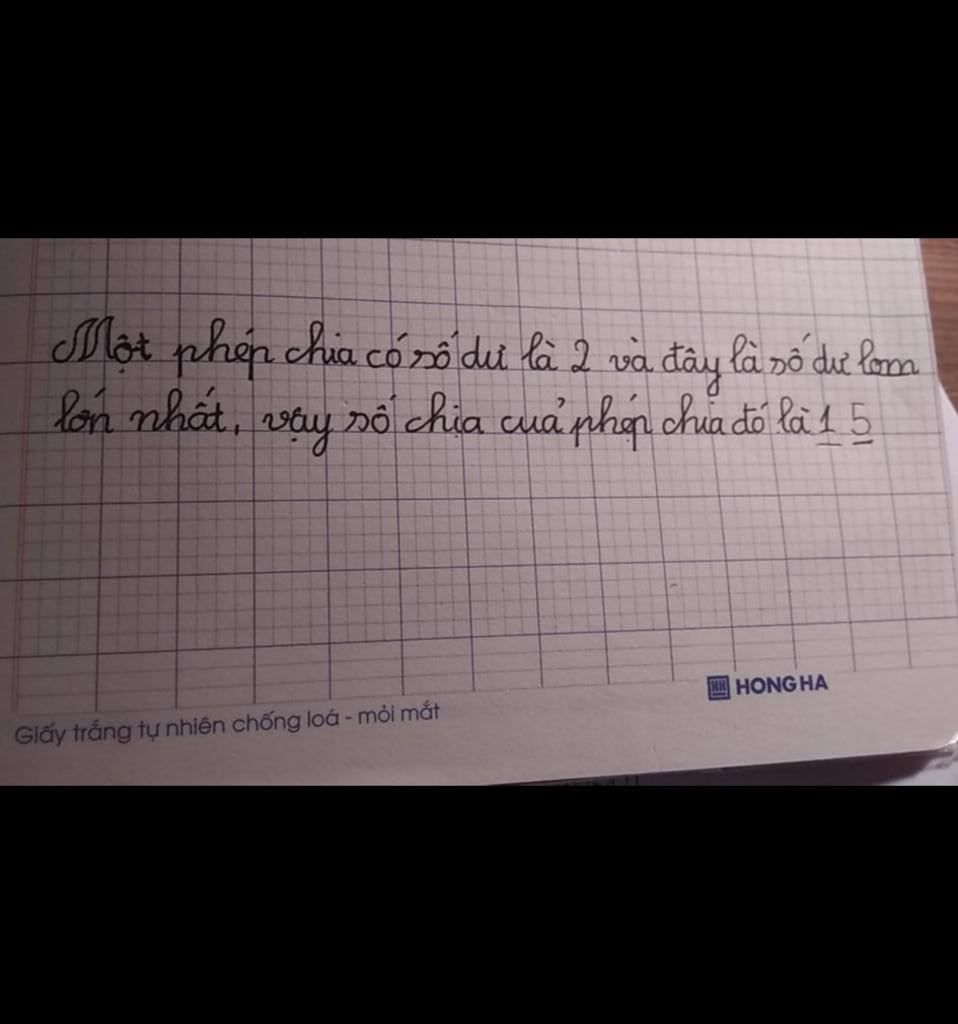 Một phép chia có số dư là 2 và đây là số dư lom
lớn nhất, vạy số chịa cuả phép chia đó là 1 5
HH HONG HA
Giấy trắng tự nhiên chống loá - mỏi mắt